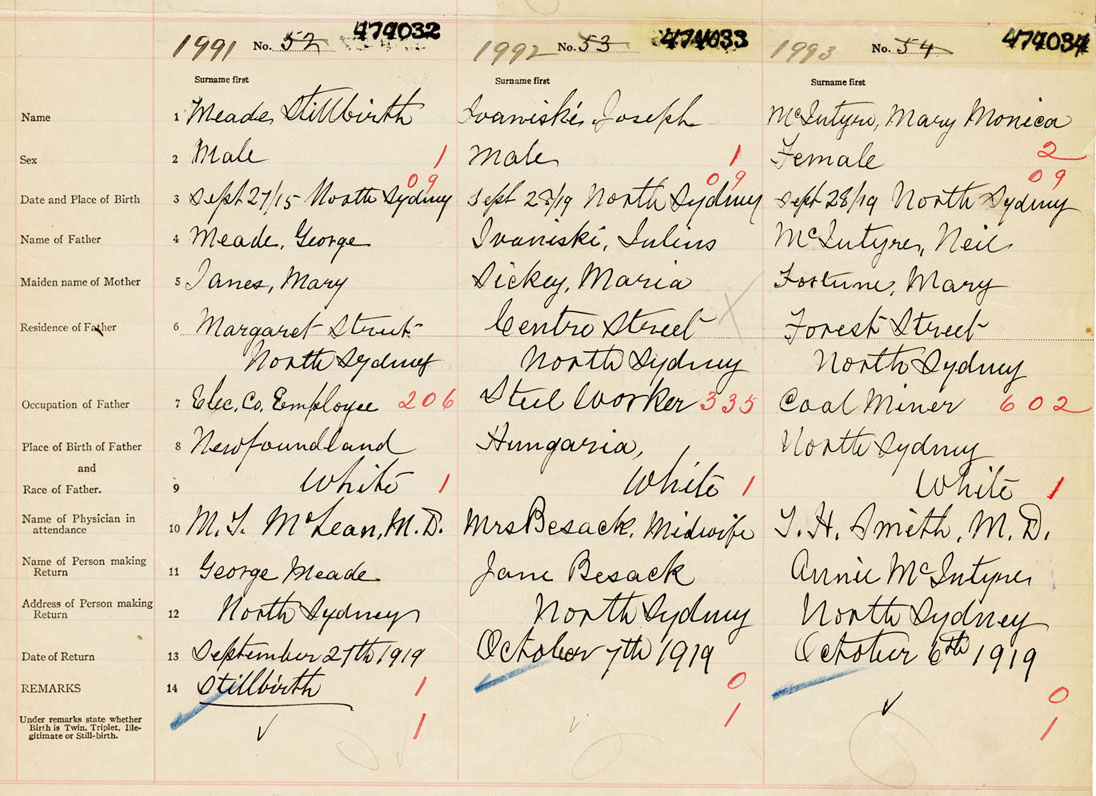 1991 No. 52 474032 1992 No. 53 474033 1993 No. 54 474034
Surname first Surname first Surname first
Name 1 Meade, Stillbirth Ivaniski, Joseph McIntyre, Mary Monica
Sex 2 Male 1 Male 1 Female 2
09 09 09
Date and Place of Birth 3 Sept 27/15 North Sydney Sept 28/19 North Sydney Sept 28/19 North Sydney
Name of Father 4 Meade, George Ivaniski, Julius McIntyre, Neil
Maiden name of Mother 5 Janes, Mary Dickey, Maria Fortune, Mary
Residence of Father 6 Margaret Street Centre Street X Forest Street
North Sydney North Sydney North Sydney
Occupation of Father 7 Elec. Co. Employee 206 Steel Worker 335 Coal Miner 602
Place of Birth of Father 8 Newfoundland Hungaria, North Sydney
and
Race of Father. 9 White 1 White 1 White 1
Name of Physician in
attendance 10 M. T. McLean, M.D. Mrs Besack, Midwife T. H. Smith, M.D.
Name of Person making
Return 11 George Meade Jane Besack Annie McIntyre
Address of Person making
Return 12 North Sydney North Sydney North Sydney
Date of Return 13 September 27th 1919 October 7th 1919 October 6th 1919
REMARKS 14 Stillbirth 1 0 0
Under remarks state whether
Birth is Twin, Triplet, Ille-
gitimate or Still-birth. 1 1 1